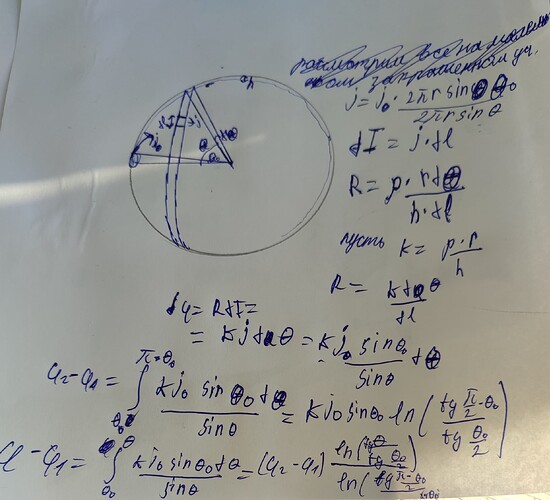 рассмотрим все на маленьком
запрошенном уч.
j = j₀ · 2πr sin θ₀ / 2πr sin θ
dI = j · dl
R = ρ · r dθ / h · dl
пусть k = ρ · r / h
R = k dθ / dl
dφ = R dI =
= k j dθ = k j₀ sin θ₀ / sin θ dθ
φ₂ - φ₁ = ∫ θ₀ π-θ₀ k j₀ sin θ₀ dθ / sin θ = k j₀ sin θ₀ ln( tg π-θ₀ / 2 / tg θ₀ / 2 )
φ - φ₁ = ∫ θ₀ θ k j₀ sin θ₀ dθ / sin θ = (φ₂ - φ₁) ln( tg θ/2 / tg θ₀/2 ) / ln( tg π-θ₀ / 2 / tg θ₀/2 )
h
dI
j
j₀
dθ
θ
θ₀